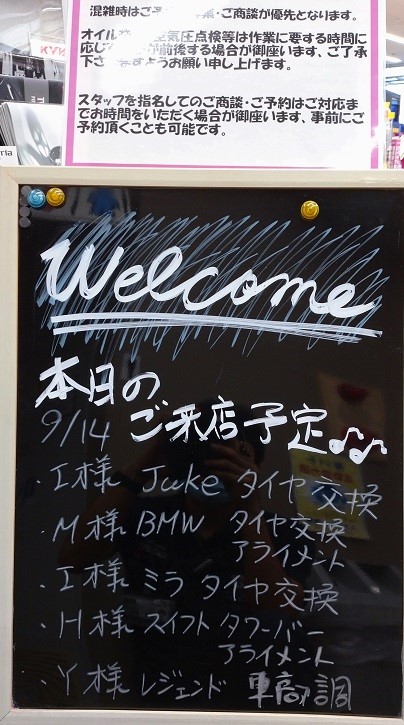 混雑時はご予 作業・ご商談が優先となります。
オイル 空気圧点検等は作業に要する時間に
応じ が前後する場合が御座います、ご了承
下さ ますようお願い申し上げます。
スタッフを指名してのご商談・ご予約はご対応まで
お時間をいただく場合が御座います、事前にご
予約頂くことも可能です。
Welcome
本日の
9/14 ご来店予定♫♪
・I様 Juke タイヤ交換
・M様 BMW タイヤ交換
アライメント
・I様 ミラ タイヤ交換
・H様 スイフト タワーバー
アライメント
・Y様 レジェンド 車高調